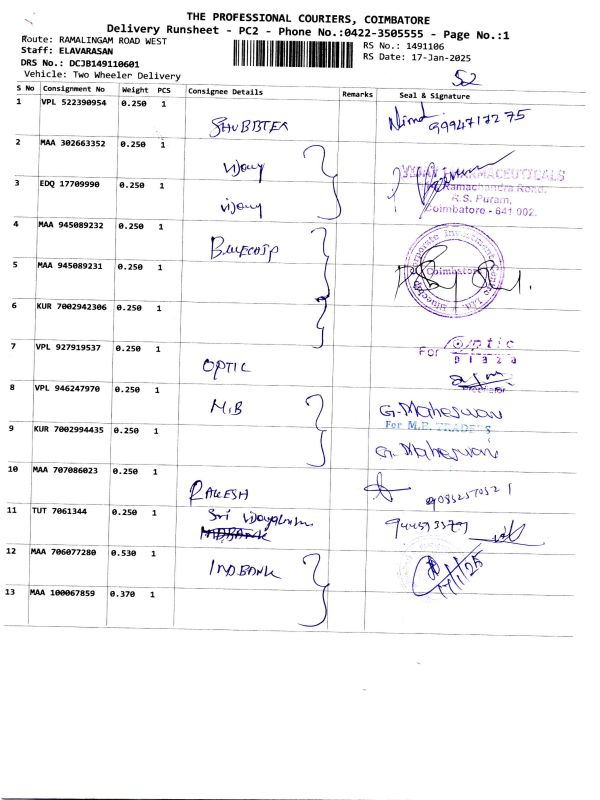 THE PROFESSIONAL COURIERS, COIMBATORE
Delivery Runsheet - PC2 - Phone No.:0422-3505555 - Page No.:1
Route: RAMALINGAM ROAD WEST
RS No.: 1491106
Staff: ELAVARASAN
RS Date: 17-Jan-2025
DRS No.: DCJB149110601
Vehicle: Two Wheeler Delivery
52
S No Consignment No Weight PCS Consignee Details Remarks Seal & Signature
1 VPL 522390954 0.250 1
SHUBBTEX
9994717275
2 MAA 302663352 0.250 1
Vijay
VIJAY PHARMACEUTICALS
3 EDQ 17709990 0.250 1
Ramachandra Road,
Vijay
R.S. Puram,
Coimbatore - 641 002.
4 MAA 945089232 0.250 1
Bluecorp
Coimbatore
5 MAA 945089231 0.250 1
6 KUR 7002942306 0.250 1
7 VPL 927919537 0.250 1
For Optic
OPTIC
8 VPL 946247970 0.250 1
G. Maheswari
For M.E. TRADERS
9 KUR 7002994435 0.250 1
G. Maheswari
10 MAA 707086023 0.250 1
RAKESH
11 TUT 7061344 0.250 1
Sri
INDBANK
12 MAA 706077280 0.530 1
INDBANK
17/1/25
13 MAA 100067859 0.370 1